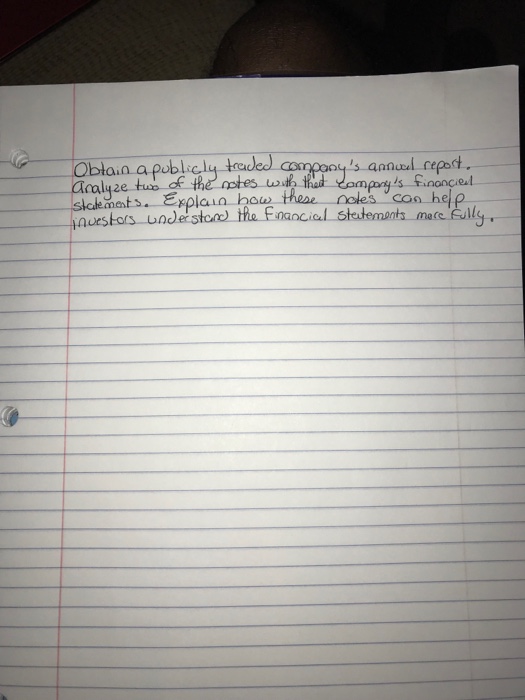 Obtain a publicly traded company's annual report.
Analyze two of the notes with that company's financial
statements. Explain how these notes can help
investors understand the financial statements more fully.